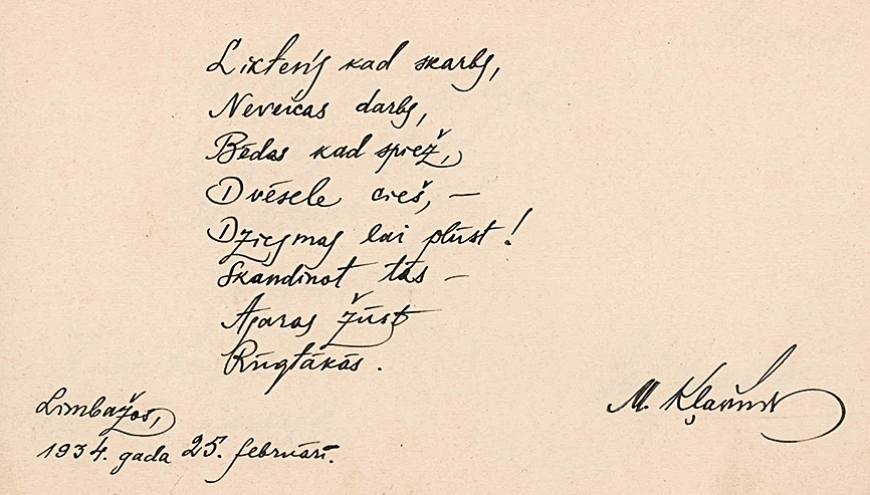 Liktenis kad skarbs,
Neveicas darbs,
Bēdas kad spiež,
Dvēsele cieš, —
Dziesmas lai plūst!
Skandinot tās —
Asaras žūst
Rūgtākās.
Limbažos,
1934. gada 25. februārī.
M. Kļaviņš